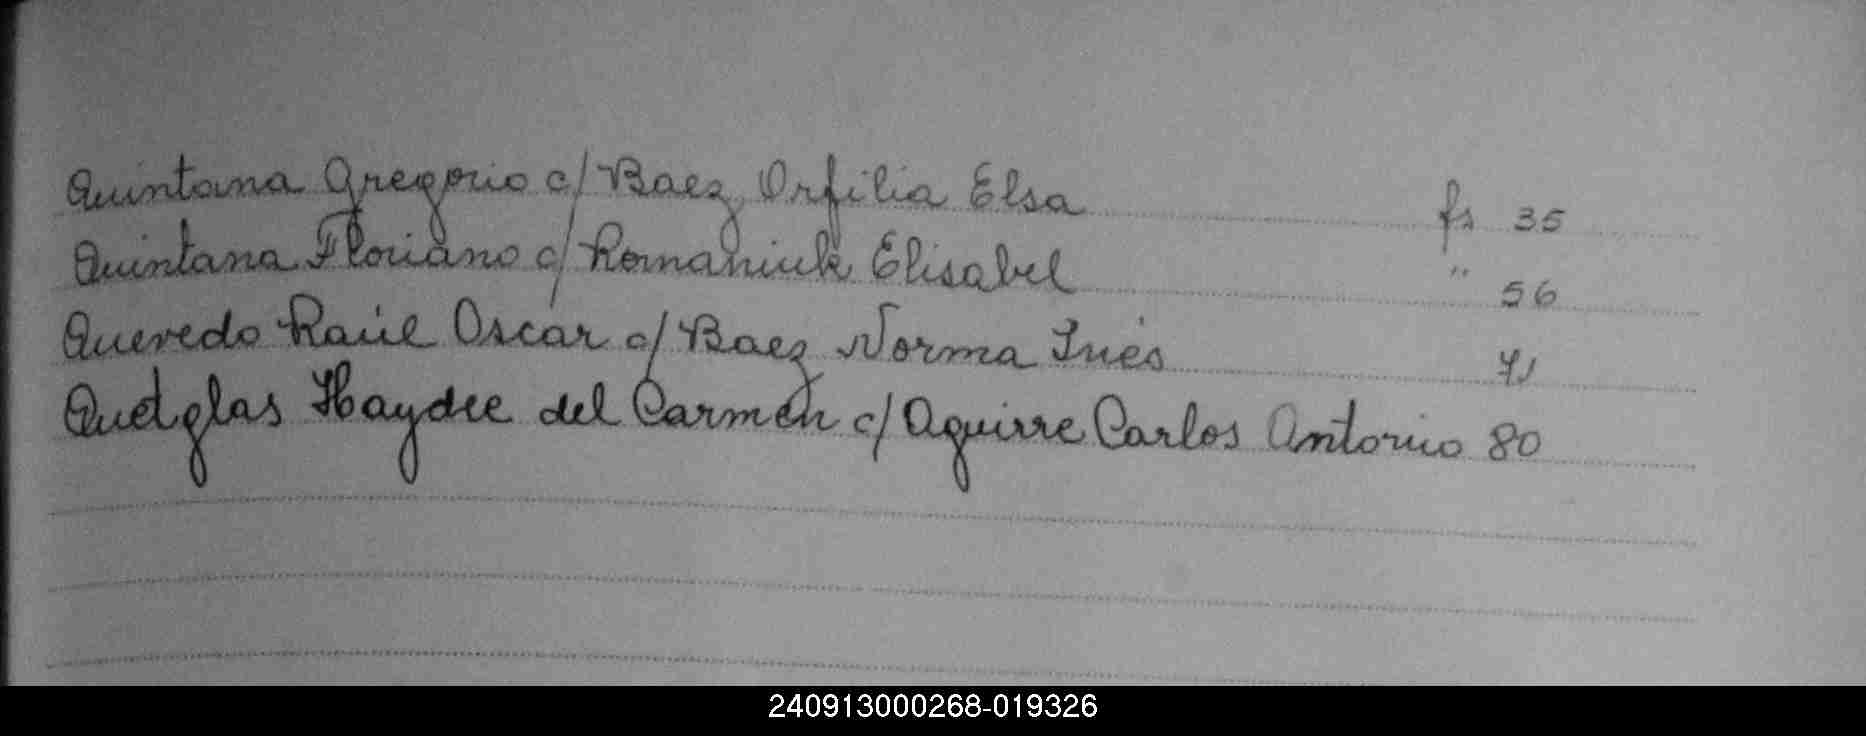 Quintana Gregorio c/ Baez Orfilia Elsa fs 35
Quintana Floriano c/ Romaniuk Elisabel " 56
Quevedo Raúl Oscar c/ Baez Norma Inés 71
Quetglas Haydee del Carmen c/ Aguirre Carlos Antonio 80
240913000268-019326